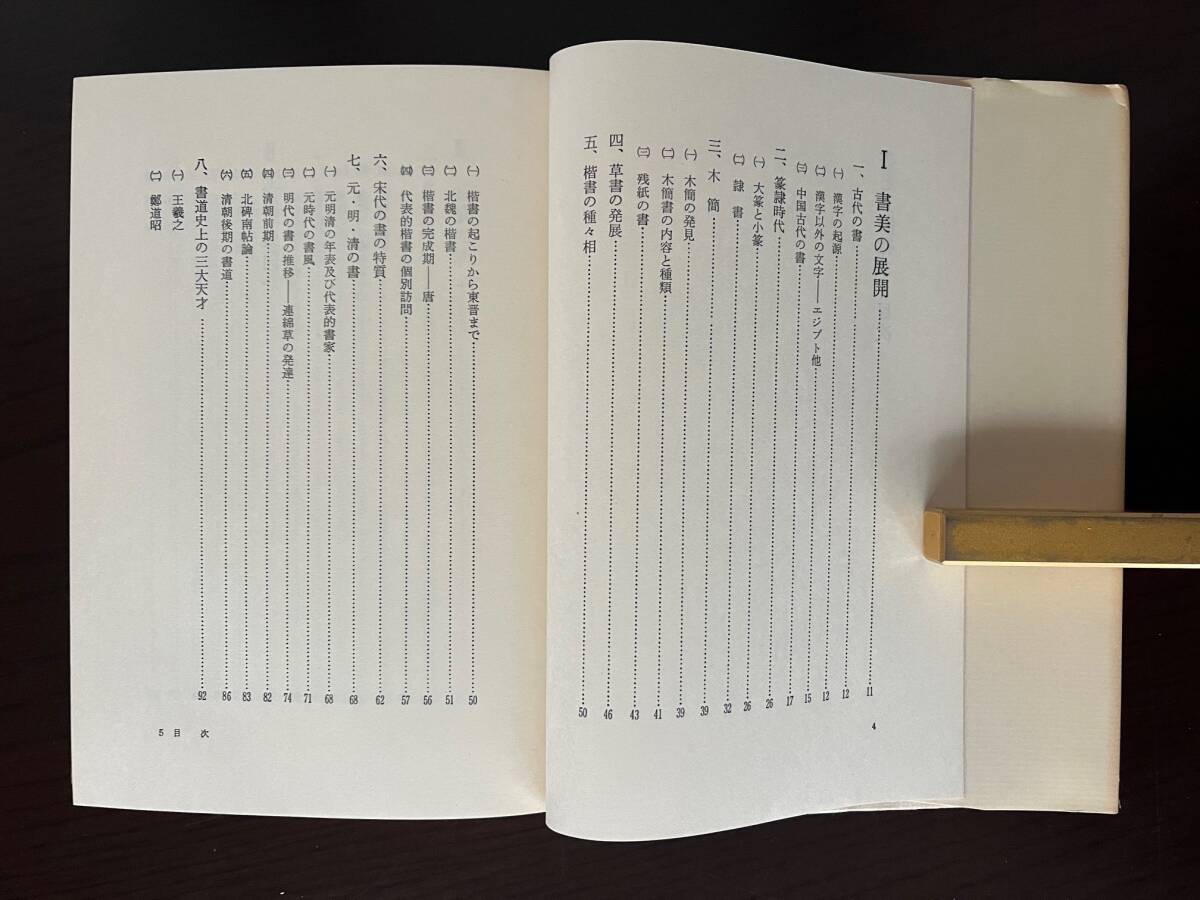 Ⅰ 書美の展開……11
一、古代の書……12
㈠ 漢字の起源……12
㈡ 漢字以外の文字——エジプト他……15
㈢ 中国古代の書……17
二、篆隷時代……26
㈠ 大篆と小篆……26
㈡ 隷書……32
三、木簡……39
㈠ 木簡の発見……39
㈡ 木簡書の内容と種類……41
㈢ 残紙の書……43
四、草書の発展……46
五、楷書の種々相……50
4
㈠ 楷書の起こりから東晋まで……50
㈡ 北魏の楷書……51
㈢ 楷書の完成期——唐……56
㈣ 代表的楷書の個別訪問……57
六、宋代の書の特質……62
七、元・明・清の書……68
㈠ 元明清の年表及び代表的書家……68
㈡ 元時代の書風……71
㈢ 明代の書の推移——連綿草の発達……74
㈣ 清朝前期……82
㈤ 北碑南帖論……83
㈥ 清朝後期の書道……86
八、書道史上の三大天才……92
㈠ 王羲之
㈡ 鄭道昭
5 目 次